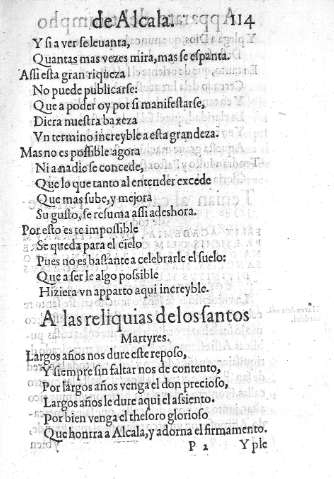 de Alcala. 114
Y si a ver se leuanta,
Quantas mas vezes mira, mas se espanta.
Assi esta gran riqueza
No puede publicarse:
Que a poder oy por si manifestarse,
Diera nuestra baxeza
Vn termino increyble a esta grandeza.
Mas no es possible agora
Ni a nadie se concede,
Que lo que tanto al entender excede
Que mas sube, y mejora
Su gusto, se resuma assi a deshora.
Por esto es te impossible
Se queda para el cielo
Pues no es bastante a celebrarle el suelo:
Que a ser le algo possible
Hiziera vn apparto aqui increyble.
A las reliquias de los santos
Martyres.
Largos años nos dure este reposo,
Y siempre sin faltar nos de contento,
Por largos años venga el don precioso,
Largos años le dure aqui el assiento.
Por bien venga el thesoro glorioso
Que honra a Alcala, y adorna el firmamento.
P 2 Y ple